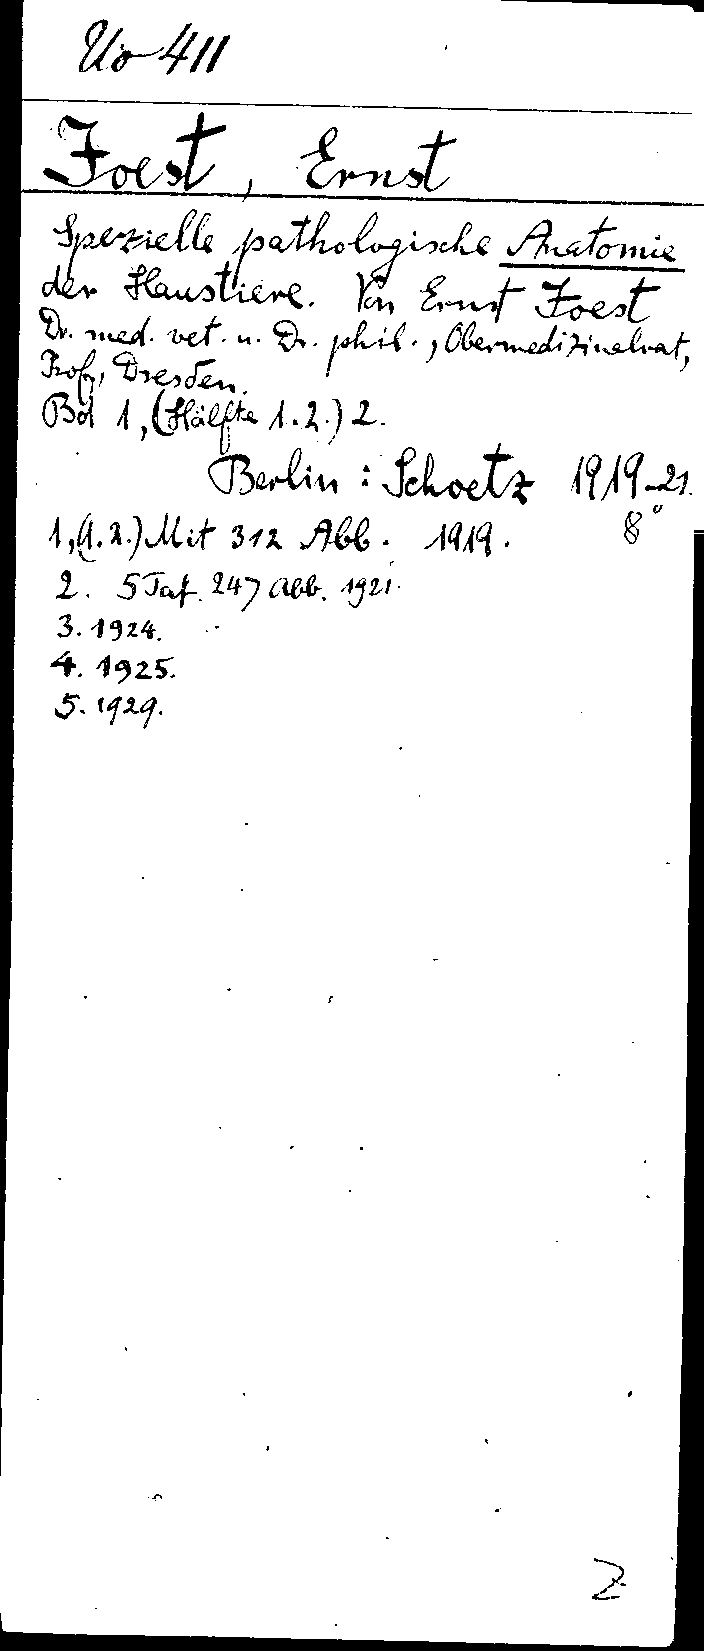 Uo 411
Joest, Ernst
Spezielle pathologische Anatomie
der Haustiere. Von Ernst Joest
Dr. med. vet. u. Dr. phil., Obermedizinalrat,
Prof., Dresden.
Bd 1, (Hälfte 1.2.) 2.
Berlin: Schoetz 1919-21.
8°
1,(1.2.) Mit 312 Abb. 1919.
2. 5 Taf. 247 Abb. 1921.
3. 1924.
4. 1925.
5. 1929.
Z